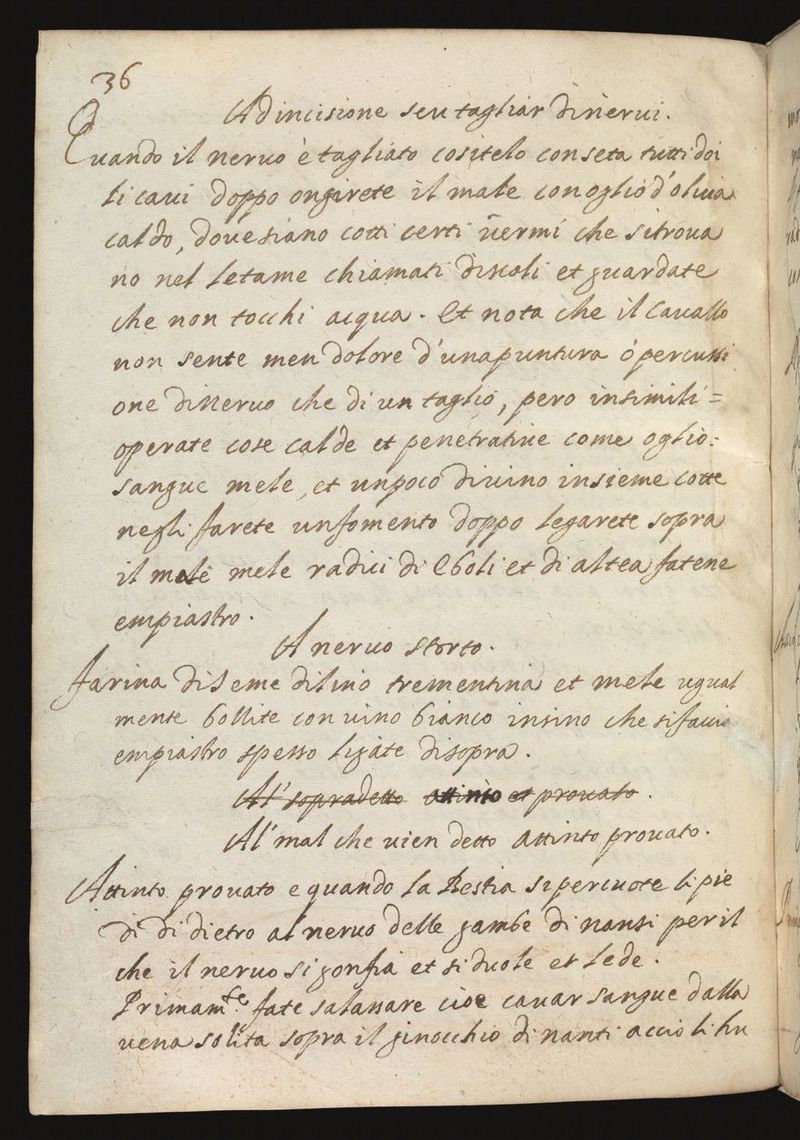 36
Ad incisione seu tagliar di nerui.
Quando il neruo è tagliato cositelo con seta tutti doi
li caui doppo ongirete il male con oglio d'oliua
caldo, doue siano cotti certi uermi che si troua
no nel letame chiamati et guardate
che non tocchi acqua. Et nota che il Cauallo
non sente men dolore d'una puntura ò percussi
one di Neruo che di un taglio, pero in simili =
operate cose calde et penetratiue come oglio:
sangue mele, et un poco di uino insieme cotte
negli farete un fomento doppo legarete sopra
il male mele radici di Eboli et di altea fatene
empiastro.
A neruo storto.
farina di seme di lino trementina et mele ugual
mente bollite con uino bianco insino che si faccia
empiastro spesso ligate disopra.
Al' sopradetto attinto et prouato.
Al' mal che uien detto attinto prouato.
Attinto prouato e quando la Bestia si percuote li pie
di di dietro al neruo delle gambe di nansi per il
che il neruo si gonfia et si duole et lede.
Primam.te fate salassare cioe cauar sangue dalla
uena solita sopra il ginocchio di nanti accio li hu